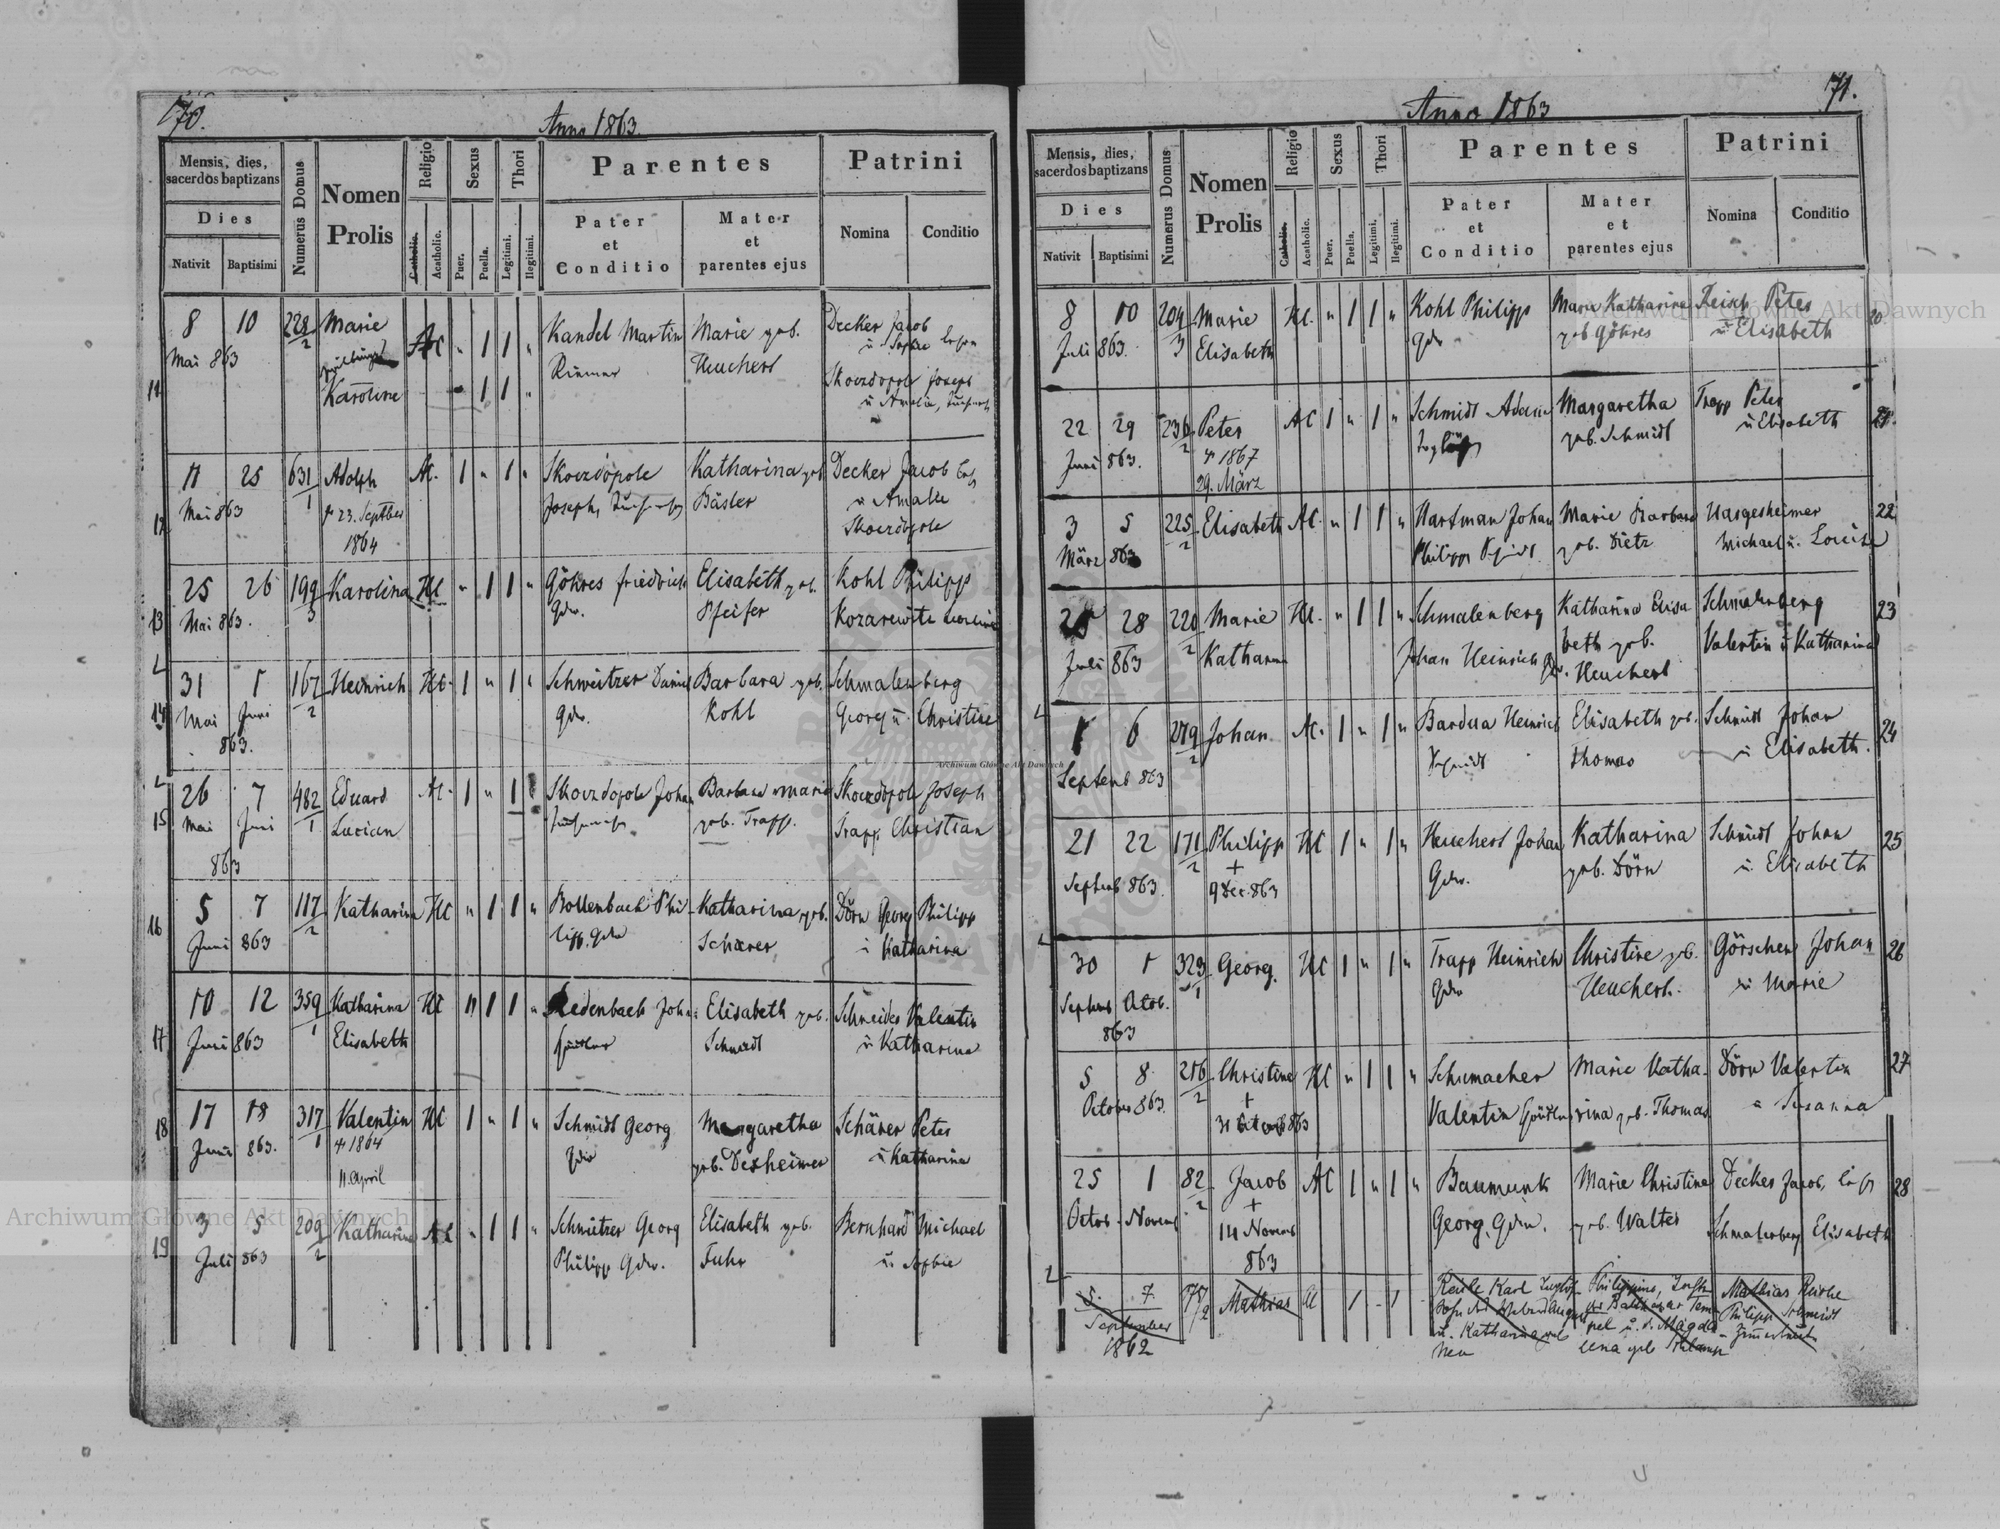 70.
Anno 1863
Mensis, dies,
sacerdos baptizans
Numerus Domus
Nomen
Prolis
Religio
Sexus
Thori
Parentes
Patrini
Dies
Nativit
Baptisimi
Catholic.
Acatholic.
Puer.
Puella.
Legitimi.
Ilegitimi.
Pater
et
Conditio
Mater
et
parentes ejus
Nomina
Conditio
11
8 10 228/2 Marie AC " 1 1 " Kandel Martin Marie geb. Decker Jacob
Mai 863 Heuchert u Sophie
Karoline 1 1 " Skoczdopole Joseph
u Amalie
12
11 25 631/1 Adolph AC. 1 " 1 " Skoczdopole Katharina geb Decker Jacob
Mai 863 23. Septber Joseph, Bäsler u Amalie
1864 Skoczdopole
13
25 26 199/3 Karolina HC " 1 1 " Göhres Friedrich Elisabeth geb. Kohl Philipp
Mai 863. Gdw. Pfeifer
14
31 1 167/2 Heinrich HC. 1 " 1 " Schweitzer Daniel Barbara geb. Schmalenberg
Mai Juni Gdw. Kohl Georg u. Christine
863.
15
26 7 482/1 Eduard AC. 1 " 1 Skoczdopole Johan Barbara Marie Skoczdopole Joseph
Mai Juni Lucian geb. Trapp. Trapp Christian
863
16
5 7 117/2 Katharina HC " 1 1 " Bollenbach Phi- Katharina geb. Dörn Georg Philipp
Juni 863 lipp. Gdw Schärer u Katharina
17
10 12 359/1 Katharina HC " 1 1 " Redenbach Johan Elisabeth geb. Schneider Valentin
Juni 863 Elisabeth Schmidt u Katharina
18
17 18 317/1 Valentin HC 1 " 1 " Schmidt Georg Margaretha Schärer Peter
Juni 863. 1864 geb. Dexheimer u Katharina
11. April
19
3 5 209/2 Katharina AC " 1 1 " Schweitzer Georg Elisabeth geb. Bernhard Michael
Juli 863 Philipp Gdw. Fuhr u. Sophie
71.
Anno 1863
Mensis, dies,
sacerdos baptizans
Numerus Domus
Nomen
Prolis
Religio
Sexus
Thori
Parentes
Patrini
Dies
Nativit
Baptisimi
Catholic.
Acatholic.
Puer.
Puella.
Legitimi.
Ilegitimi.
Pater
et
Conditio
Mater
et
parentes ejus
Nomina
Conditio
8 10 204/3 Marie HC. " 1 1 " Kohl Philipp Marie Katharina Peter 20
Juli 863. Elisabeth Gdw geb Göhres u Elisabeth
22 29 236/2 Peter AC 1 " 1 " Schmidt Adam Margaretha Trapp Peter 21.
Juni 863. 1867 geb. Schmidt u Elisabeth
29. März
3 5 225/2 Elisabeth AC. " 1 1 " Hartman Johan Marie Barbara Hargesheimer 22
März 863 Philipp geb. Dietz Michael u. Louise
28 220/2 Marie HC. " 1 1 " Schmalenberg Katharina Elisa Schmalenberg 23
Juli 863 Katharina Johan Heinrich beth geb. Valentin u Katharina
Heuchert
1 6 279/2 Johan AC. 1 " 1 " Bardua Heinrich Elisabeth geb. Schmidt Johan 24
Septemb 863 Thomas u Elisabeth.
21 22 171/2 Philipp HC 1 " 1 " Heuchert Johan Katharina Schmidt Johan 25
Septemb 863. + Gdw. geb. Dörn u. Elisabeth
9 Dec. 863
30 1 329/1 Georg. HC 1 " 1 " Trapp Heinrich Christine geb. Görschen Johan 26
Septemb Octob. Gdw Heuchert. u Marie
863
5 8 216/2 Christine HC " 1 1 " Schumacher Marie Katha- Dörn Valentin 27
October 863. + Valentin rina geb. Thomas u Susanna
31 Octob 863
25 1 82/2 Jacob AC 1 " 1 " Baumunk Marie Christine Decker Jacob, 28
Octob. Novemb + Georg, Gdw. geb. Walter Schmalenberg Elisabeth
14 Novemb
863
5. 7 Mathias AC 1 - 1 Reiche Karl Philippine, Mathias Reiche
September Balthasar Tem- Philipp Schmidt
1862 u. Katharina geb pel u. d. Magda-
Neu lena geb
Archiwum Główne Akt Dawnych
Archiwum Główne Akt Dawnych
Archiwum Główne Akt Dawnych